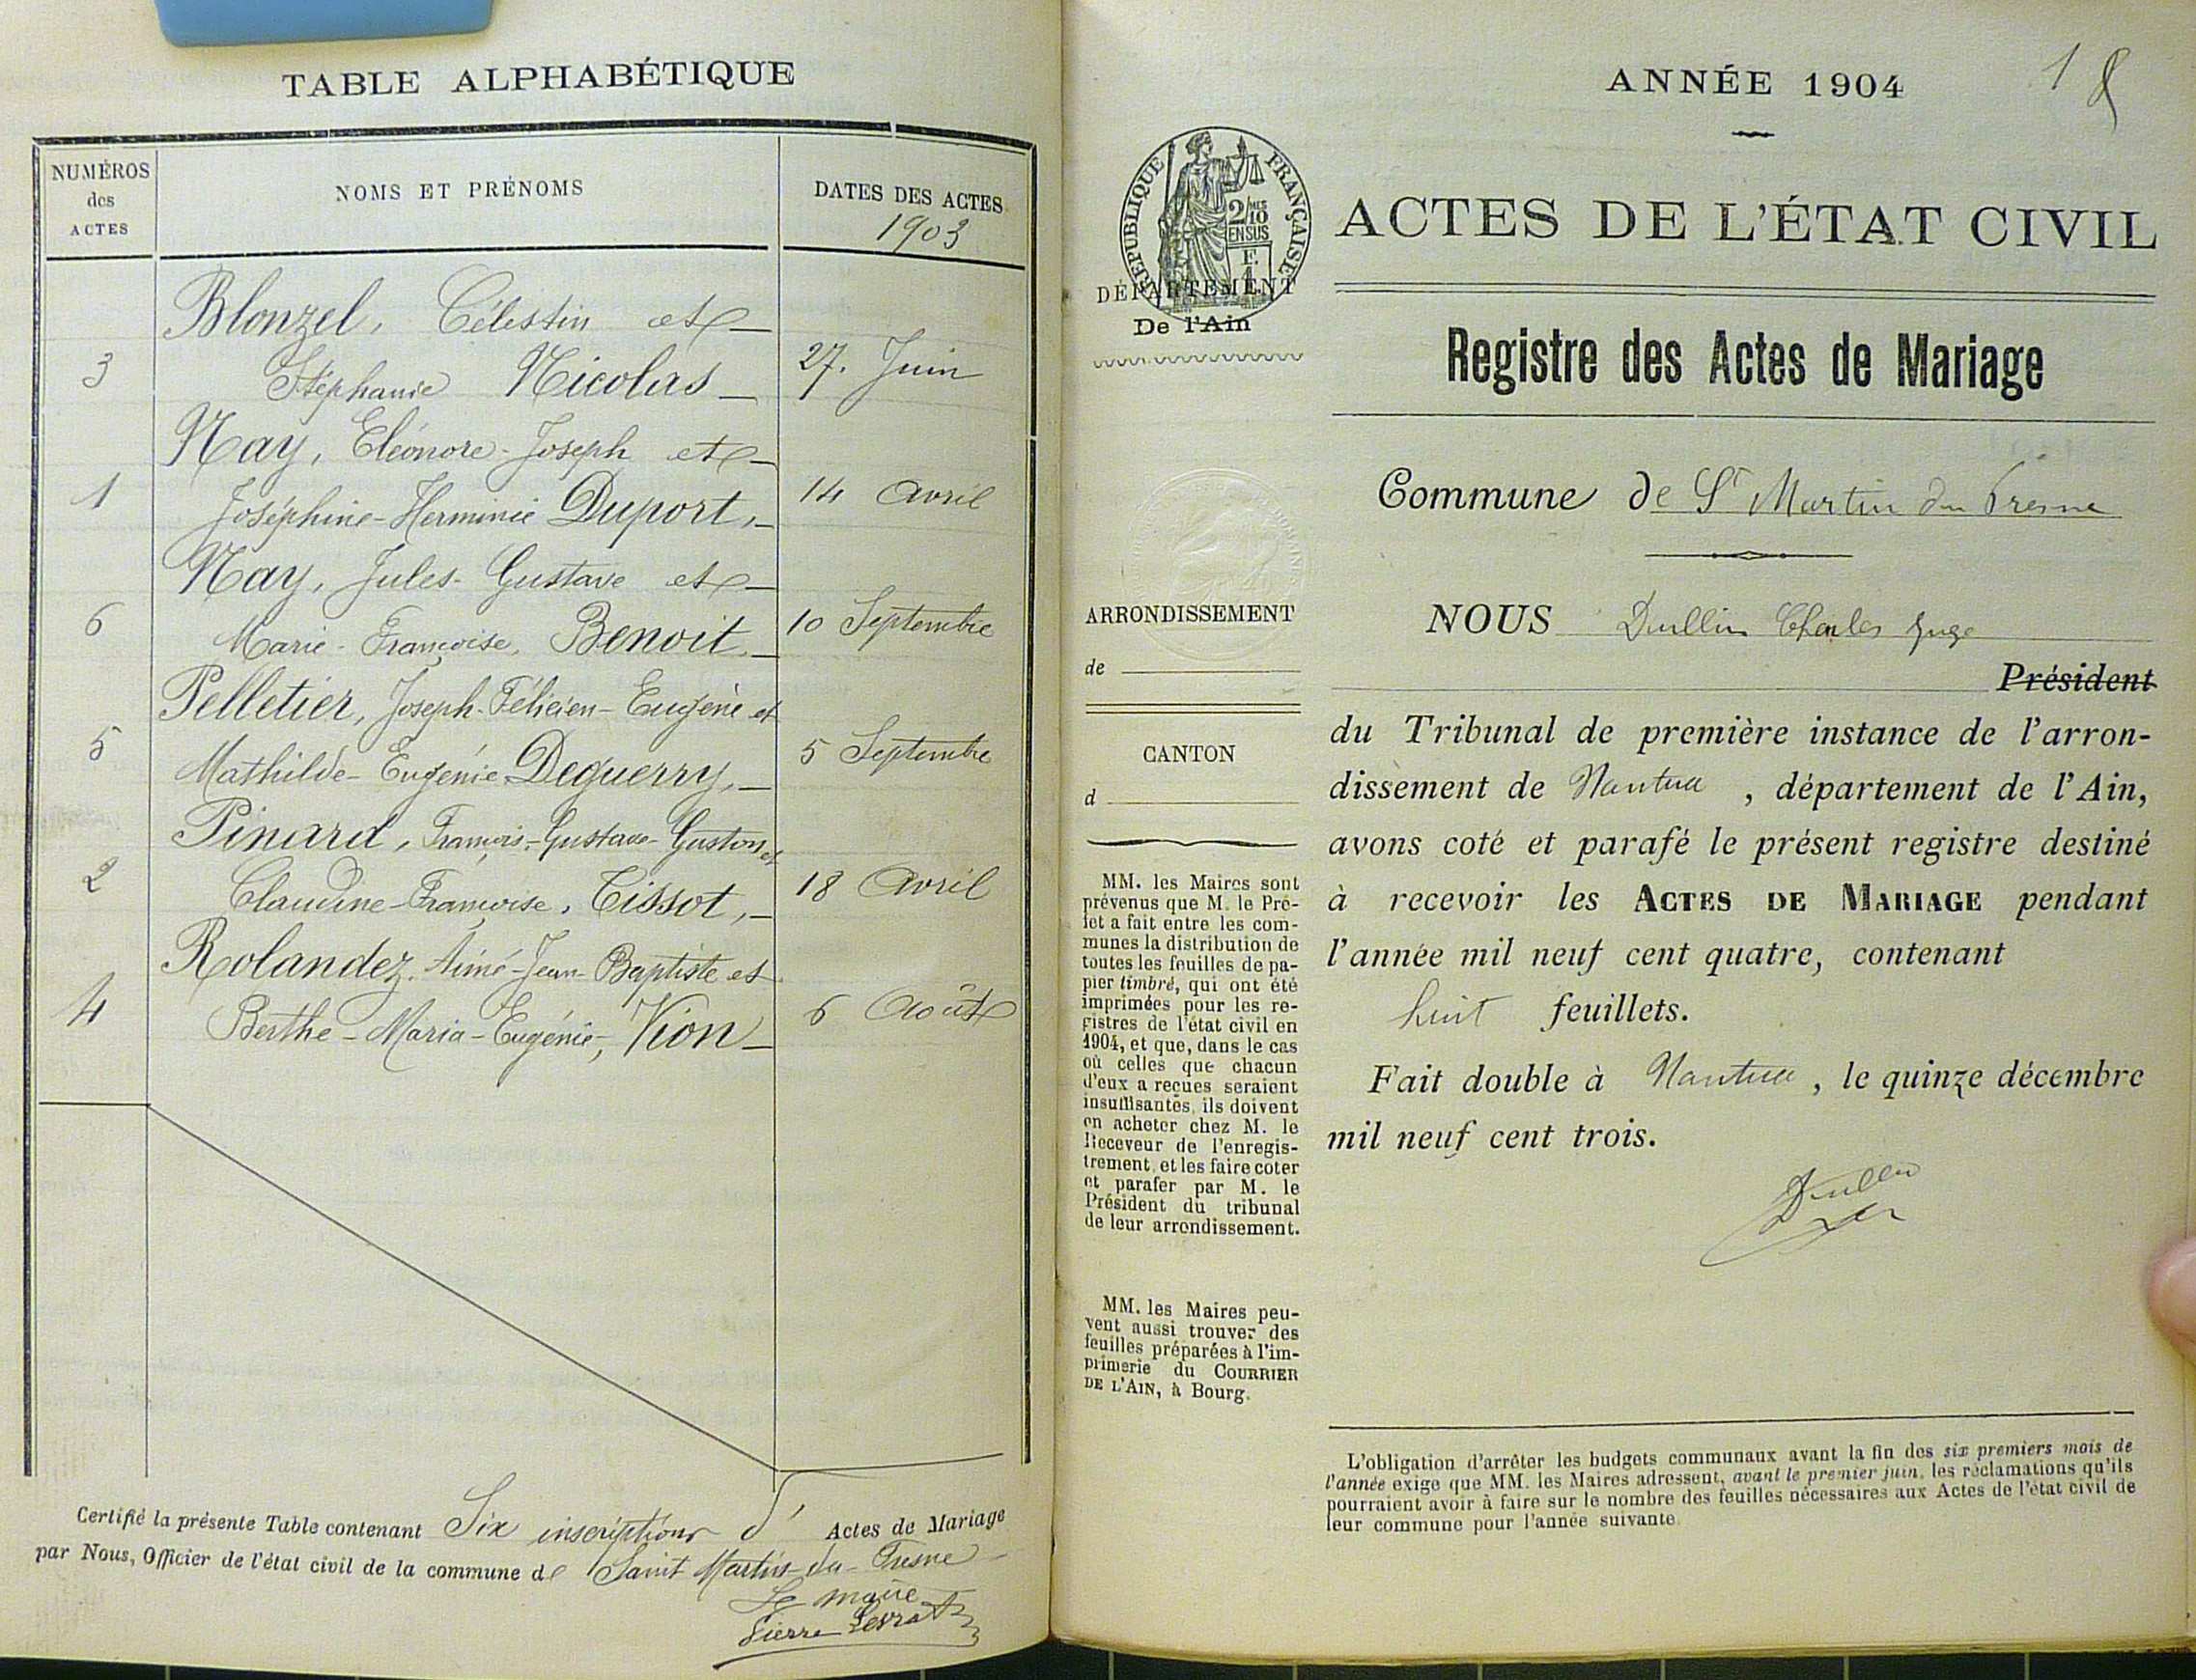 TABLE ALPHABÉTIQUE
NUMÉROS
des
ACTES
NOMS ET PRÉNOMS
DATES DES ACTES
1903
Blonzel, Célestin et
3 Stéphanie Nicolas 27. Juin
Nay, Eléonore-Joseph et
1 Joséphine-Herminie Duport, 14 Avril
Nay, Jules-Gustave et
6 Marie-Françoise, Benoit, 10 Septembre
Pelletier, Joseph-Félicien-Eugène et
5 Mathilde-Eugénie Deguerry, 5 Septembre
Pinard, François-Gustave-Gaston et
2 Claudine-Françoise, Tissot, 18 Avril
Rolandez, Aimé-Jean-Baptiste et
4 Berthe-Maria-Eugénie, Vion 6 Août
Certifié la présente Table contenant Six inscriptions d' Actes de Mariage
par Nous, Officier de l'état civil de la commune de Saint Martin-du-Fresne
Le maire
Pierre Levrat
ANNÉE 1904
1
RÉPUBLIQUE FRANÇAISE
2/10 MES
EN SUS
F.
1.
ACTES DE L'ÉTAT CIVIL
DÉPARTEMENT
De l'Ain
Registre des Actes de Mariage
Commune de St Martin du Fresne
ARRONDISSEMENT
de
CANTON
d
MM. les Maires sont
prévenus que M. le Pré-
fet a fait entre les com-
munes la distribution de
toutes les feuilles de pa-
pier timbré, qui ont été
imprimées pour les re-
gistres de l'état civil en
1904, et que, dans le cas
où celles que chacun
d'eux a reçues seraient
insuffisantes, ils doivent
en acheter chez M. le
Receveur de l'enregis-
trement, et les faire coter
et parafer par M. le
Président du tribunal
de leur arrondissement.
MM. les Maires peu-
vent aussi trouver des
feuilles préparées à l'im-
primerie du COURRIER
DE L'AIN, à Bourg.
NOUS Dullin Charles Juge
Président
du Tribunal de première instance de l'arron-
dissement de Nantua , département de l'Ain,
avons coté et parafé le présent registre destiné
à recevoir les ACTES DE MARIAGE pendant
l'année mil neuf cent quatre, contenant
huit feuillets.
Fait double à Nantua , le quinze décembre
mil neuf cent trois.
Dullin
L'obligation d'arrêter les budgets communaux avant la fin des six premiers mois de
l'année exige que MM. les Maires adressent, avant le premier juin, les réclamations qu'ils
pourraient avoir à faire sur le nombre des feuilles nécessaires aux Actes de l'état civil de
leur commune pour l'année suivante.